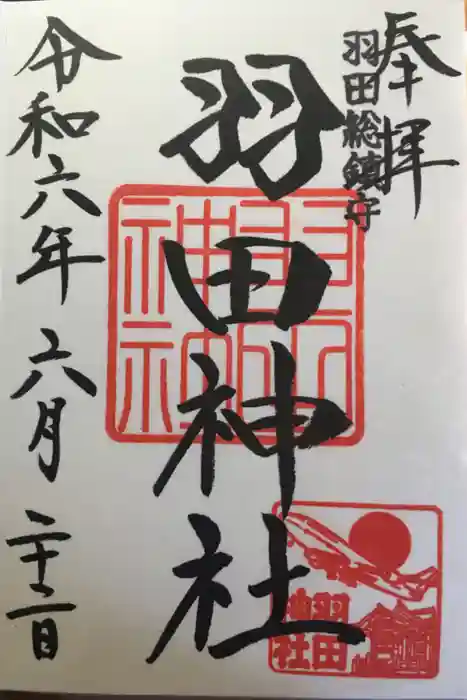 奉拝
羽田総鎮守
羽田神社
令和六年 六月 二十二日
羽田
神社
羽田
神社